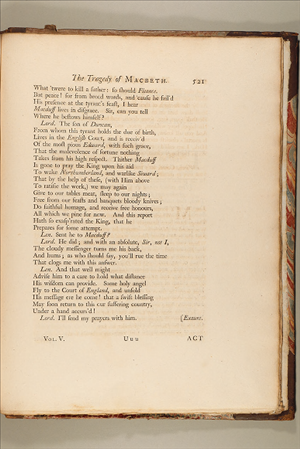 The Tragedy of MACBETH. 521
What 'twere to kill a father: so should Fleance.
But peace! for from broad words, and 'cause he fail'd
His presence at the tyrant's feast, I hear
Macduff lives in disgrace. Sir, can you tell
Where he bestows himself?
Lord. The son of Duncan,
From whom this tyrant holds the due of birth,
Lives in the English Court, and is receiv'd
Of the most pious Edward, with such grace,
That the malevolence of fortune nothing
Takes from his high respect. Thither Macduff
Is gone to pray the King upon his aid
To wake Northumberland, and warlike Siward;
That by the help of these, (with Him above
To ratifie the work,) we may again
Give to our tables meat, sleep to our nights;
Free from our feasts and banquets bloody knives;
Do faithful homage, and receive free honours,
All which we pine for now. And this report
Hath so exasp'rated the King, that he
Prepares for some attempt.
Len. Sent he to Macduff?
Lord. He did; and with an absolute, Sir, not I,
The cloudy messenger turns me his back,
And hums; as who should say, you'll rue the time
That clogs me with this answer.
Len. And that well might
Advise him to a care to hold what distance
His wisdom can provide. Some holy angel
Fly to the Court of England, and unfold
His message ere he come! that a swift blessing
May soon return to this our suffering country,
Under a hand accurs'd!
Lord. I'll send my prayers with him. [Exeunt.
VOL. V. Uuu ACT